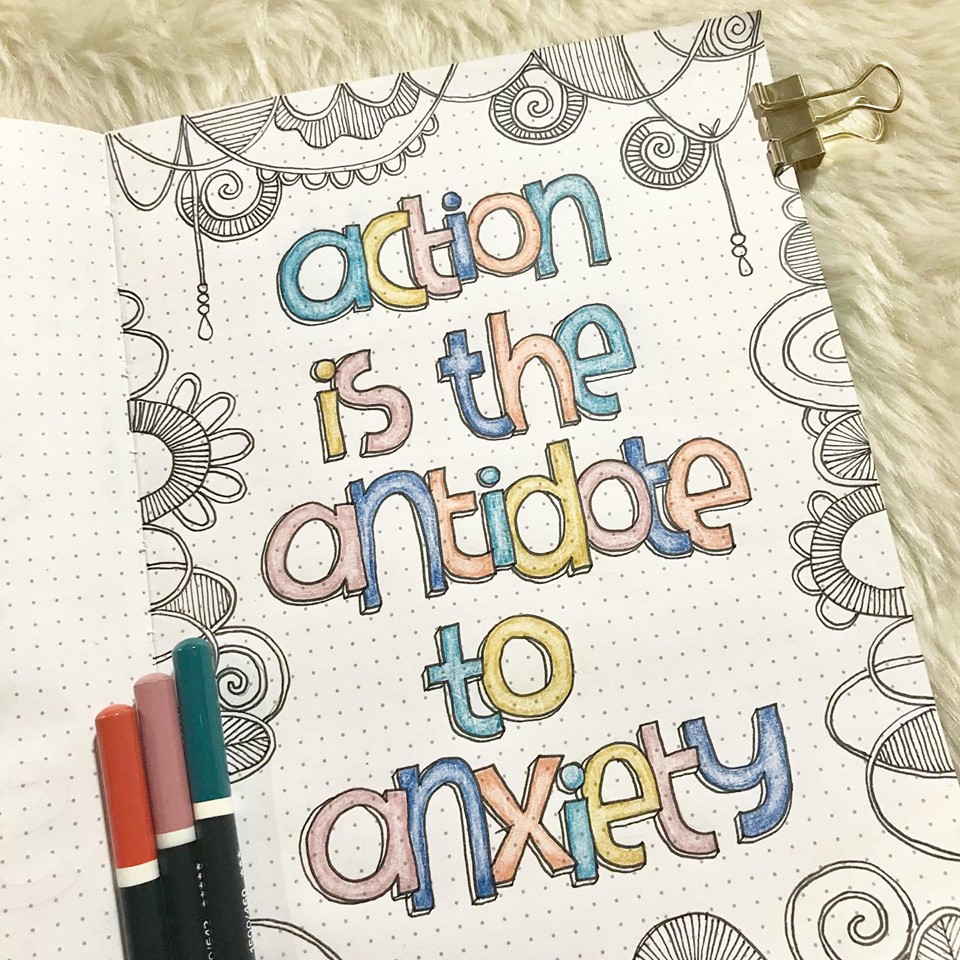 action
is the
antidote
to
anxiety